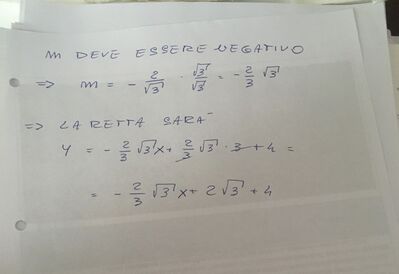 m DEVE ESSERE NEGATIVO
⇒ m = - 2/√3 · √3/√3 = - 2/3 √3
⇒ LA RETTA SARA'
Y = - 2/3 √3 x + 2/3 √3 · 3 + 4 =
= - 2/3 √3 x + 2√3 + 4